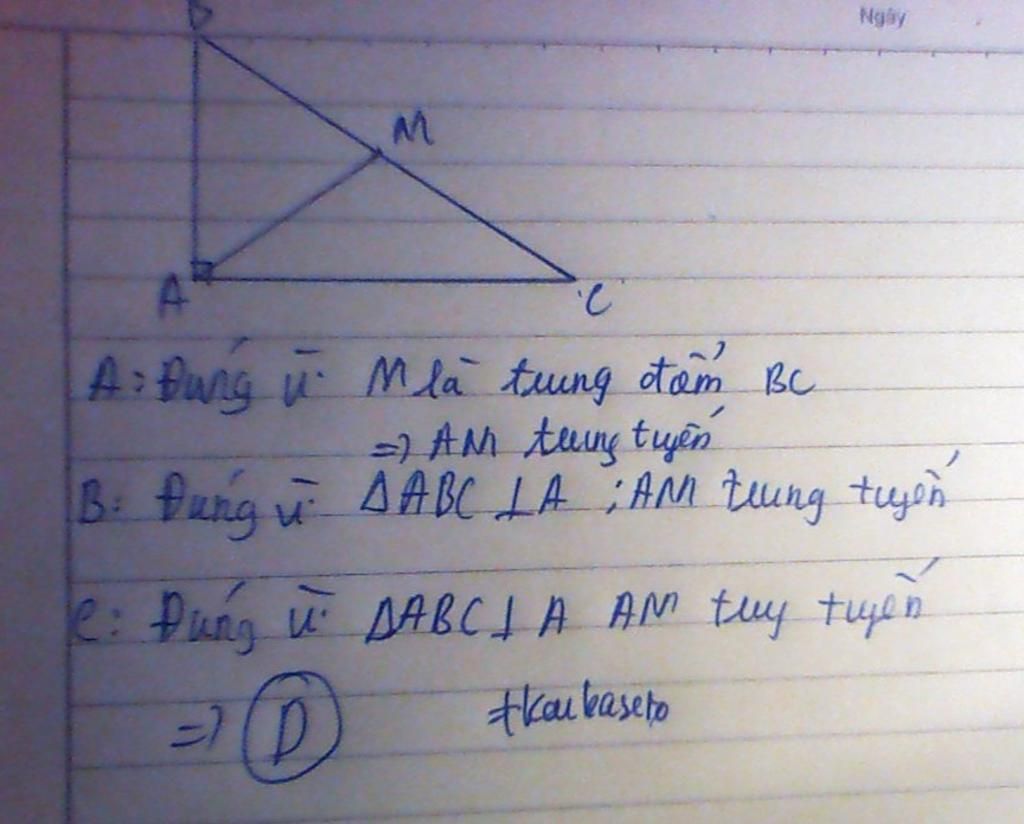 Ngày
B
M
A
C
A: Đúng vì M là trung điểm BC
=> AM trung tuyến
B: Đúng vì ΔABC ⊥ A ; AM trung tuyến
C: Đúng vì ΔABC ⊥ A AM tuy tuyến
=> D